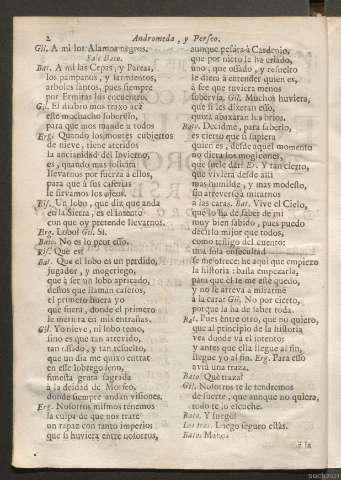 2 Andromeda, y Perseo.
Gil. A mi los Alamos negros.
Sale Bato.
Bat. A mi las Cepas, y Parras,
los pampanos, y sarmientos,
arboles santos, pues siempre
por Ermitas los encuentro.
Gil. El diablo mos traxo acà
este mochacho sobervio,
para que mos mande à todos
Erg. Quando los montes cubiertos
de nieve, tiene ateridos
la ancianidad del Invierno,
es, quando mas
llevarnos por fuerza à ellos,
para que à sus
le sirvamos los
Ris. Un lobo, que diz que anda
en la Sierra, es el intento
con que oy pretende llevarnos.
Erg. Lobo? Gil. Si.
Bato. No es lo peor esso.
Ris. Què es?
Bat. Que el lobo es un perdido,
jugador, y mogeriego,
que à ser un lobo apricado,
destos que llaman caseros,
el primero huera yo
que fuera, donde el primero
le metiera en mis entrañas.
Gil. Yo nieve, ni lobo temo,
sino es que tan atrevido,
tan ossado, y tan resuelto,
que un dia me quixo entrar
en esse lobrego seno,
funesta gruta sagrada
à la deidad de Morfeo,
donde siempre andan visiones.
Erg. Nosotros mismos tenemos
la culpa de que mos trate
un rapaz con tanto imperio:
que si huviera entre nosotros,
aunque pesàra à Cardenio,
que por nieto le ha criado,
uno, que ossado, y resuelto
le diera à entender quien es,
à fee que tuviera menos
sobervia. Gil. Muchos huviera,
que si les dixeran esso,
quizà abaxàran los brios.
Bato. Decidme, para saberlo,
es cierto que si supiera
quien es, desde aquel momento
no diera los mogicones,
que suele dar? Er. Y tan cierto,
que viviera desde alli
mas humilde, y mas modesto,
sin atreverse à mirarnos
à las caras. Bat. Vive el Cielo,
que lo ha de saber de mi
muy bien sabido, pues puedo
decirlo mijor que todos,
como testigo del cuento:
una sola enfecultad
se me ofrece: he aqui que empiezo
la historia: basta empezarla,
para que èl se me estè quedo,
y no se atreva à mirarme
à la cara? Gil. No por cierto,
porque la ha de saber toda.
Bat. Pues entre otro, que no quiero,
que al principio de la historia
vea donde và el intento;
y antes que ella llegue al fin,
llegue yo al fin. Erg. Para esso
avià una traza.
Bato. Què traza?
Gil. Nosotros te le tendremos
de suerte, que aunque no quiera,
todo te lo escuche.
Bato. Y luego?
Los tres. Luego seguro estàs.
Bato. Manos
à la